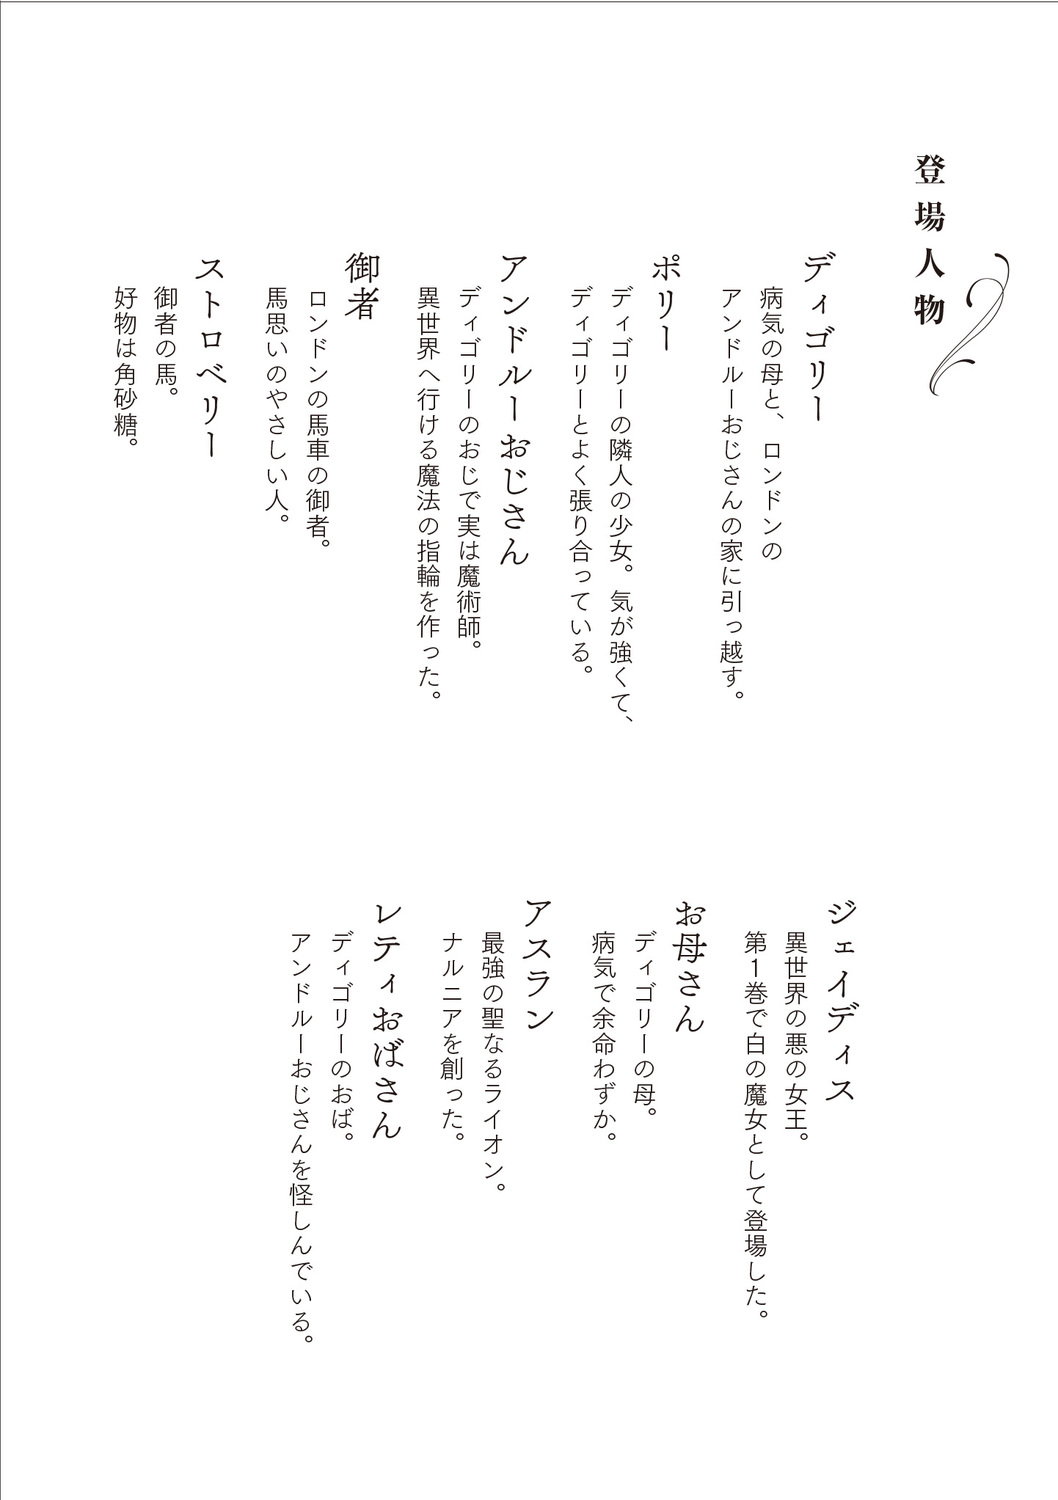 登場人物
ディゴリー
病気の母と、ロンドンの
アンドルーおじさんの家に引っ越す。
ポリー
ディゴリーの隣人の少女。気が強くて、
ディゴリーとよく張り合っている。
アンドルーおじさん
ディゴリーのおじで実は魔術師。
異世界へ行ける魔法の指輪を作った。
御者
ロンドンの馬車の御者。
馬思いのやさしい人。
ストロベリー
御者の馬。
好物は角砂糖。
ジェイディス
異世界の悪の女王。
第1巻で白の魔女として登場した。
お母さん
ディゴリーの母。
病気で余命わずか。
アスラン
最強の聖なるライオン。
ナルニアを創った。
レティおばさん
ディゴリーのおば。
アンドルーおじさんを怪しんでいる。